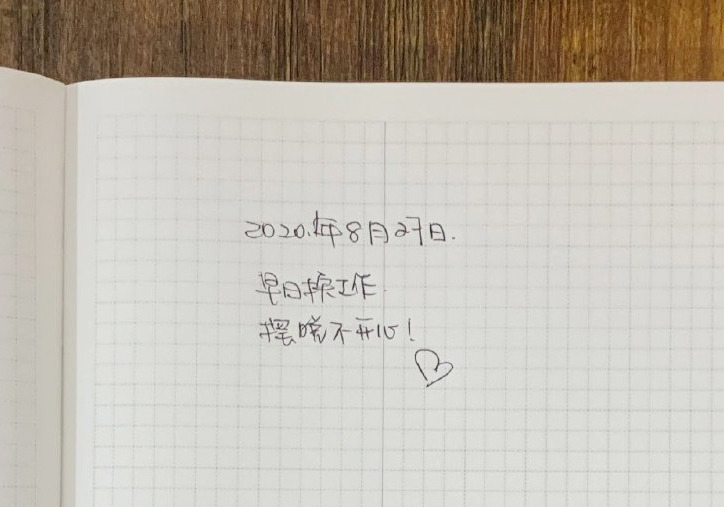 2020.年8月27日.
早日换工作
摆脱不开心!